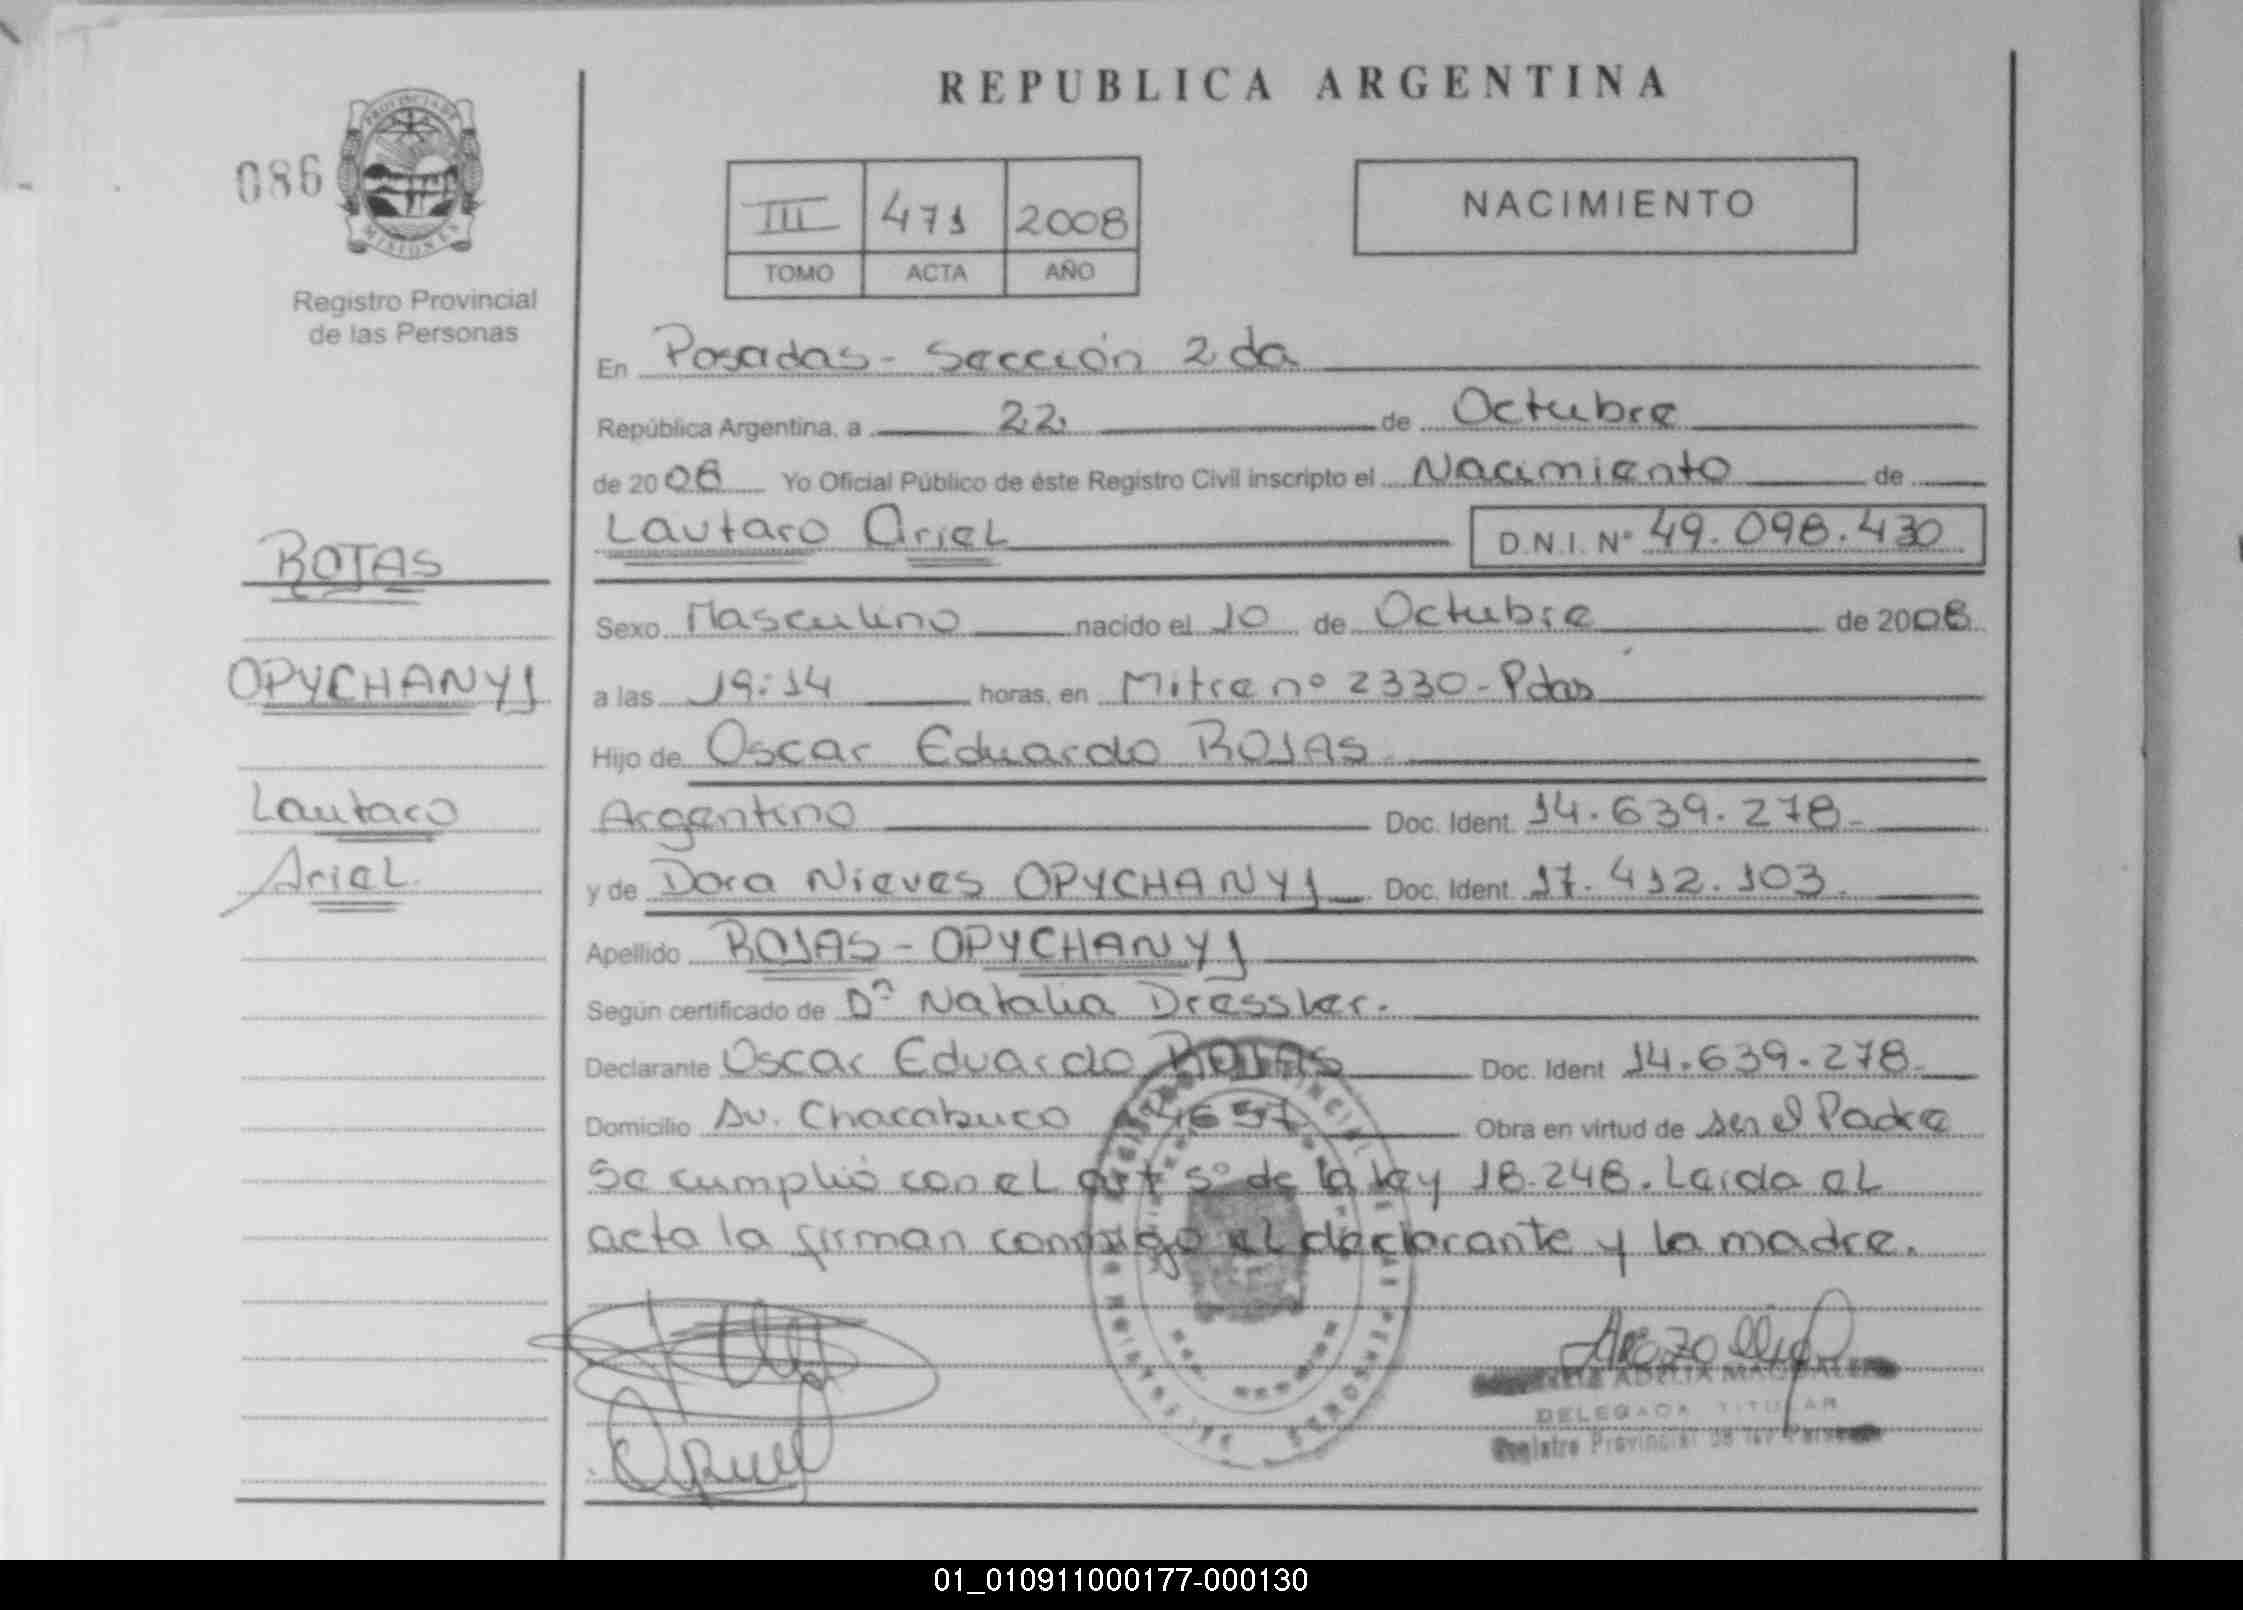 REPUBLICA ARGENTINA
086
PROVINCIA DE
MISIONES
Registro Provincial
de las Personas
III 471 2008
TOMO ACTA AÑO
NACIMIENTO
En Posadas - Sección 2da
República Argentina, a 22 de Octubre
de 2008 Yo Oficial Público de éste Registro Civil inscripto el Nacimiento de
Lautaro Ariel D.N.I. Nº 49.098.430
ROJAS
OPYCHANYJ
Lautaro
Ariel
Sexo Masculino nacido el 10 de Octubre de 2008
a las 19:14 horas, en Mitre nº 2330 - Pdas
Hijo de Oscar Eduardo ROJAS
Argentino Doc. Ident. 14.639.278
y de Dora Nieves OPYCHANYJ Doc. Ident. 17.412.103
Apellido ROJAS - OPYCHANYJ
Según certificado de Dª Natalia Dressler.
Declarante Oscar Eduardo ROJAS Doc. Ident 14.639.278
Domicilio Av. Chacabuco 4657 Obra en virtud de ser el Padre
Se cumplió con el art 5º de la ley 18.248. Leída el
acta la firman conmigo el declarante y la madre.
ADELIA MAGDALENA
DELEGADA TITULAR
Registro Provincial de las Personas
01_010911000177-000130